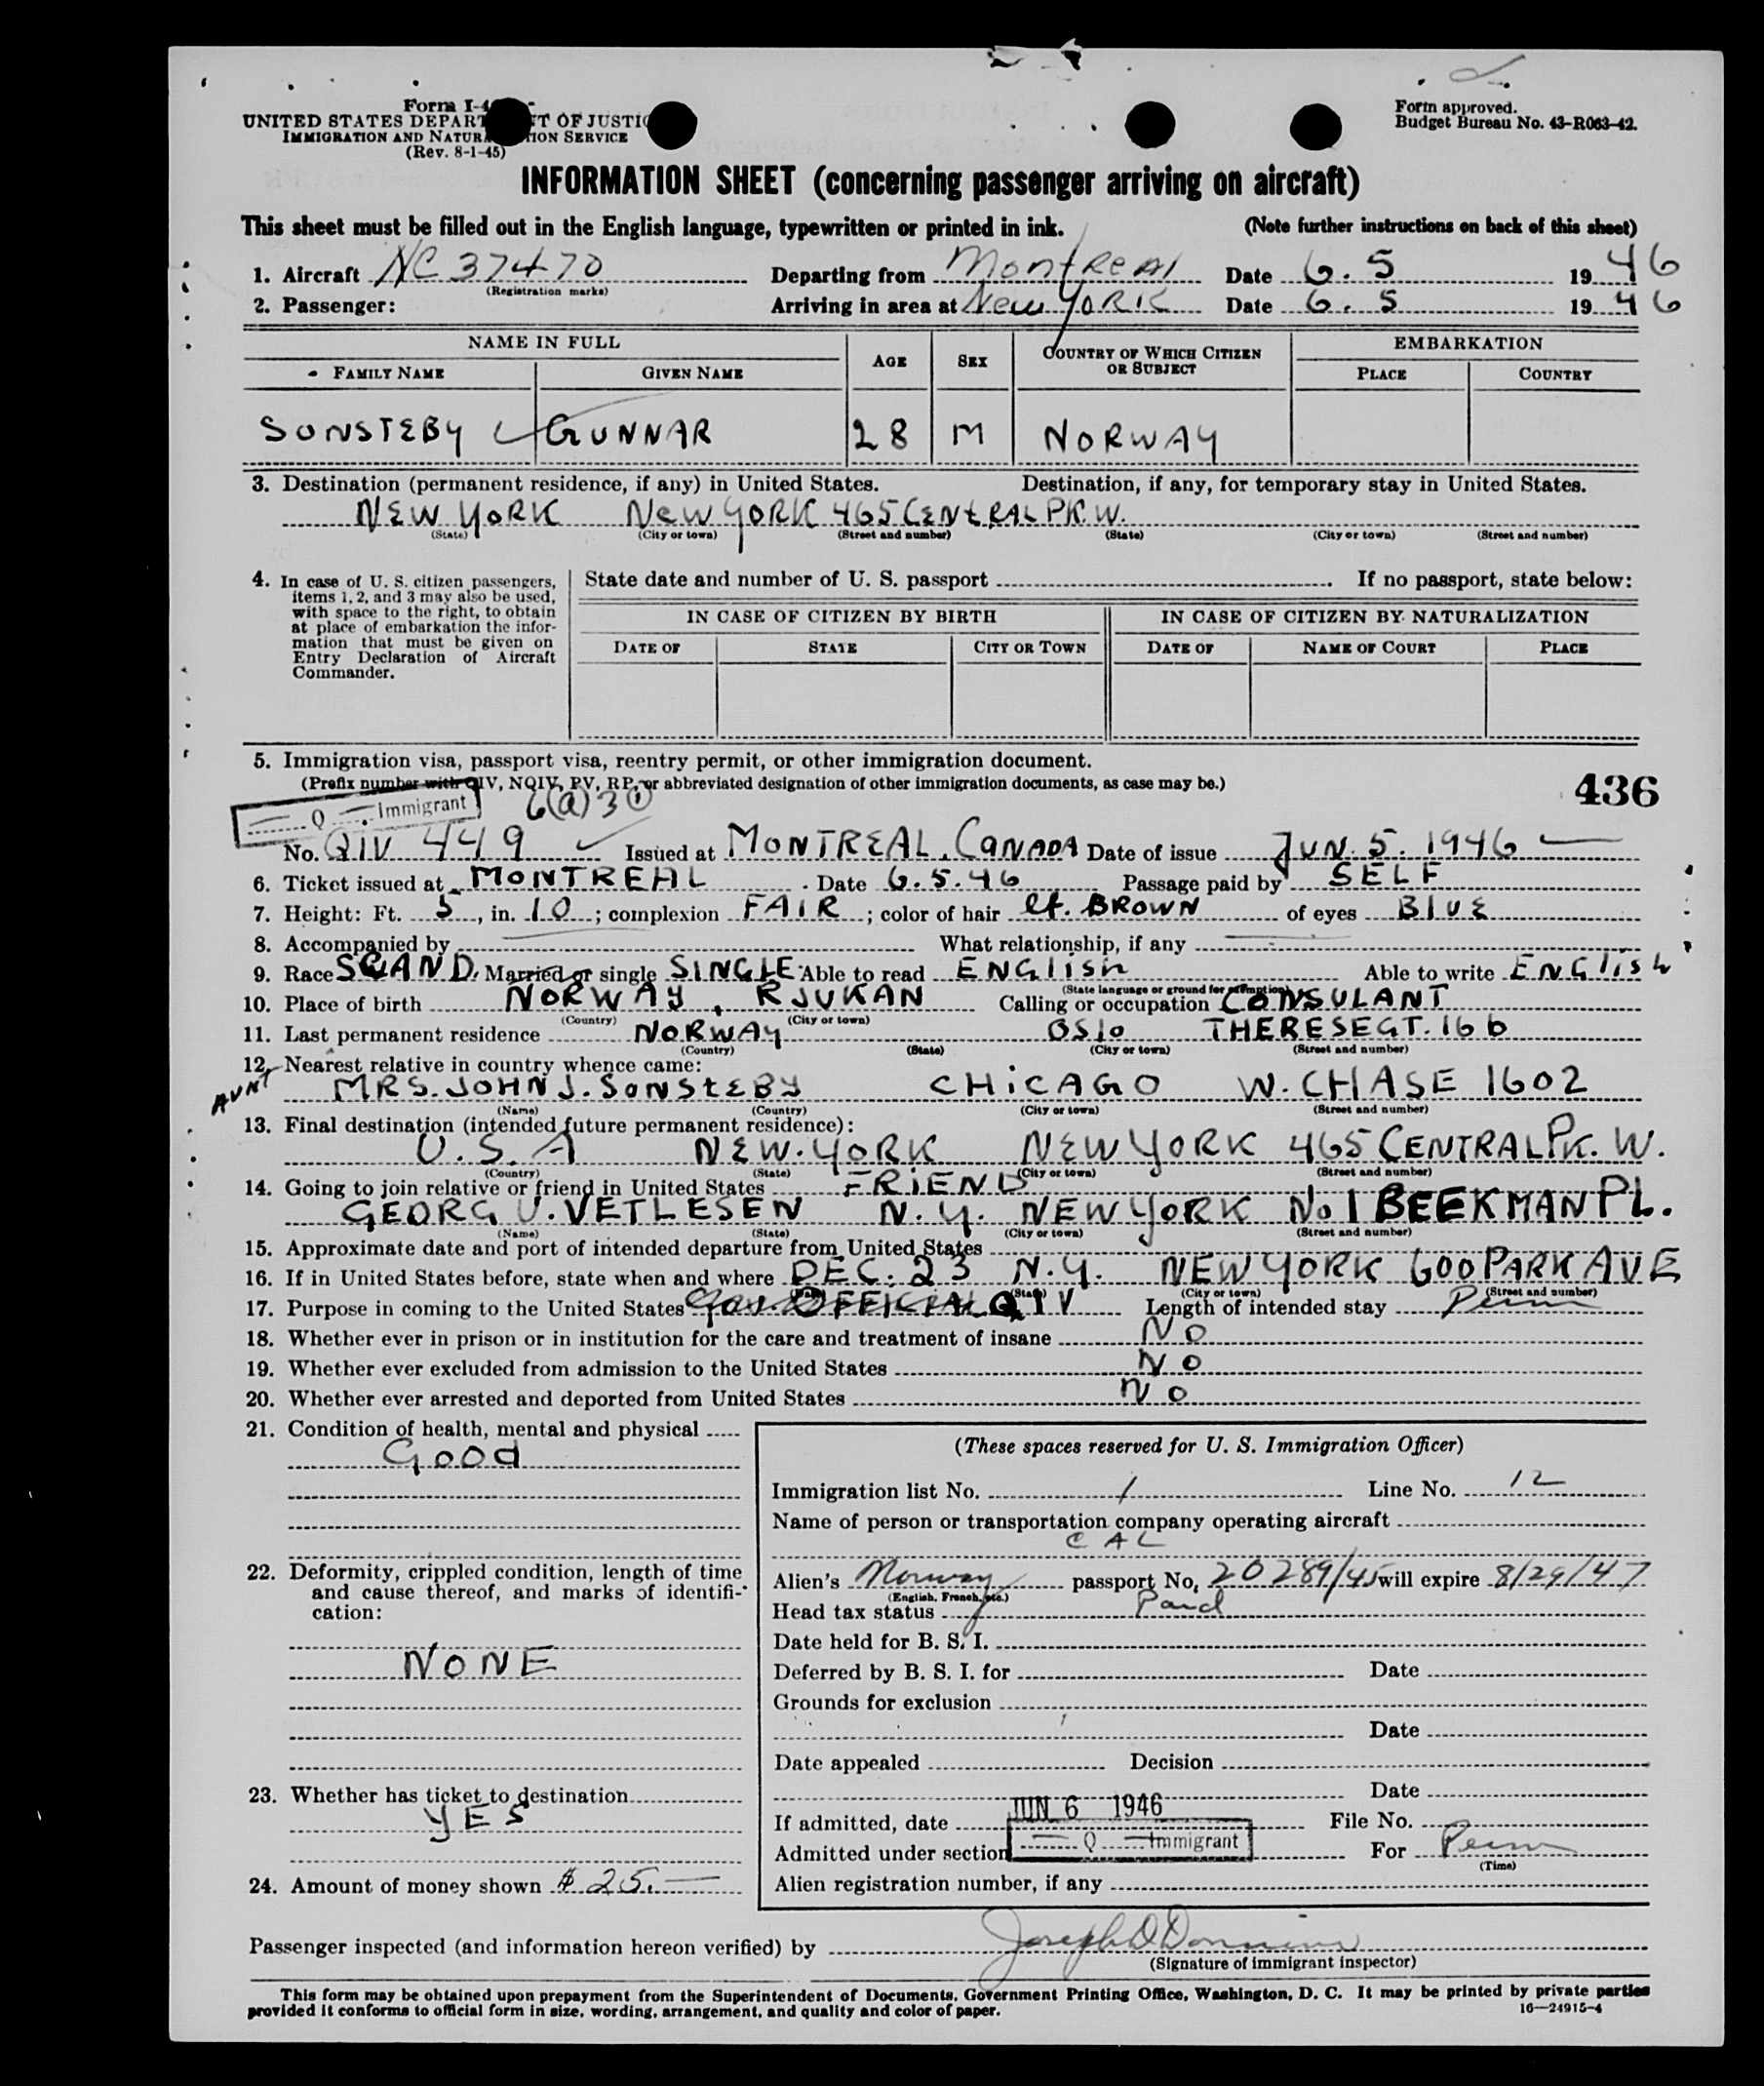 Form I-4
UNITED STATES DEPART T OF JUSTIC
IMMIGRATION AND NATURA TION SERVICE
(Rev. 8-1-45)
Form approved.
Budget Bureau No. 43-R063-42.
INFORMATION SHEET (concerning passenger arriving on aircraft)
This sheet must be filled out in the English language, typewritten or printed in ink. (Note further instructions on back of this sheet)
1. Aircraft NC 37470 Departing from Montreal Date 6.5 1946
(Registration marks)
2. Passenger: Arriving in area at New YORK Date 6.5 1946
NAME IN FULL AGE SEX COUNTRY OF WHICH CITIZEN OR SUBJECT EMBARKATION
FAMILY NAME GIVEN NAME PLACE COUNTRY
SONSTEBY GUNNAR 28 M NORWAY
3. Destination (permanent residence, if any) in United States. Destination, if any, for temporary stay in United States.
NEW YORK NEW YORK 465 CENTRAL PK. W.
(State) (City or town) (Street and number) (State) (City or town) (Street and number)
4. In case of U. S. citizen passengers, items 1, 2, and 3 may also be used, with space to the right, to obtain at place of embarkation the information that must be given on Entry Declaration of Aircraft Commander.
State date and number of U. S. passport If no passport, state below:
IN CASE OF CITIZEN BY BIRTH IN CASE OF CITIZEN BY NATURALIZATION
DATE OF STATE CITY OR TOWN DATE OF NAME OF COURT PLACE
5. Immigration visa, passport visa, reentry permit, or other immigration document.
(Prefix number with QIV, NQIV, PV, RP, or abbreviated designation of other immigration documents, as case may be.)
436
Q Immigrant 6(a)3 ①
No. QIV 449 Issued at MONTREAL, CANADA Date of issue JUN. 5. 1946
6. Ticket issued at MONTREAL Date 6.5.46 Passage paid by SELF
7. Height: Ft. 5, in. 10; complexion FAIR; color of hair lt. BROWN of eyes BLUE
8. Accompanied by What relationship, if any
9. Race SCAND. Married or single SINGLE Able to read ENGlisH Able to write ENGlisH
(State language or ground for exemption)
10. Place of birth NORWAY, RJUKAN Calling or occupation CONSULANT
(Country) (City or town)
11. Last permanent residence NORWAY OSlo THERESEGT. 16 b
(Country) (State) (City or town) (Street and number)
12. Nearest relative in country whence came:
AUNT MRS. JOHN J. SONSTEBY CHICAGO W. CHASE 1602
(Name) (Country) (City or town) (Street and number)
13. Final destination (intended future permanent residence):
U.S.A NEW. YORK NEW YORK 465 CENTRAL PK. W.
(Country) (State) (City or town) (Street and number)
14. Going to join relative or friend in United States FRIEND
GEORG U. VETLESEN N.Y. NEW YORK No 1 BEEKMAN PL.
(Name) (State) (City or town) (Street and number)
15. Approximate date and port of intended departure from United States
16. If in United States before, state when and where DEC. 23 N.Y. NEW YORK 600 PARK AVE
(State) (City or town) (Street and number)
17. Purpose in coming to the United States Gov. OFFICIAL QIV Length of intended stay Perm
18. Whether ever in prison or in institution for the care and treatment of insane NO
19. Whether ever excluded from admission to the United States NO
20. Whether ever arrested and deported from United States NO
21. Condition of health, mental and physical
Good
22. Deformity, crippled condition, length of time and cause thereof, and marks of identification:
NONE
23. Whether has ticket to destination
YES
24. Amount of money shown $ 25.—
(These spaces reserved for U. S. Immigration Officer)
Immigration list No. 1 Line No. 12
Name of person or transportation company operating aircraft
CAL
Alien's Norway passport No. 20289/45 will expire 8/29/47
(English, French, etc.)
Head tax status Paid
Date held for B. S. I.
Deferred by B. S. I. for Date
Grounds for exclusion
Date
Date appealed Decision
Date
If admitted, date JUN 6 1946 File No.
Admitted under section Q Immigrant For Perm
(Time)
Alien registration number, if any
Passenger inspected (and information hereon verified) by Joseph D
(Signature of immigrant inspector)
This form may be obtained upon prepayment from the Superintendent of Documents, Government Printing Office, Washington, D. C. It may be printed by private parties
provided it conforms to official form in size, wording, arrangement, and quality and color of paper.
16—24915-4